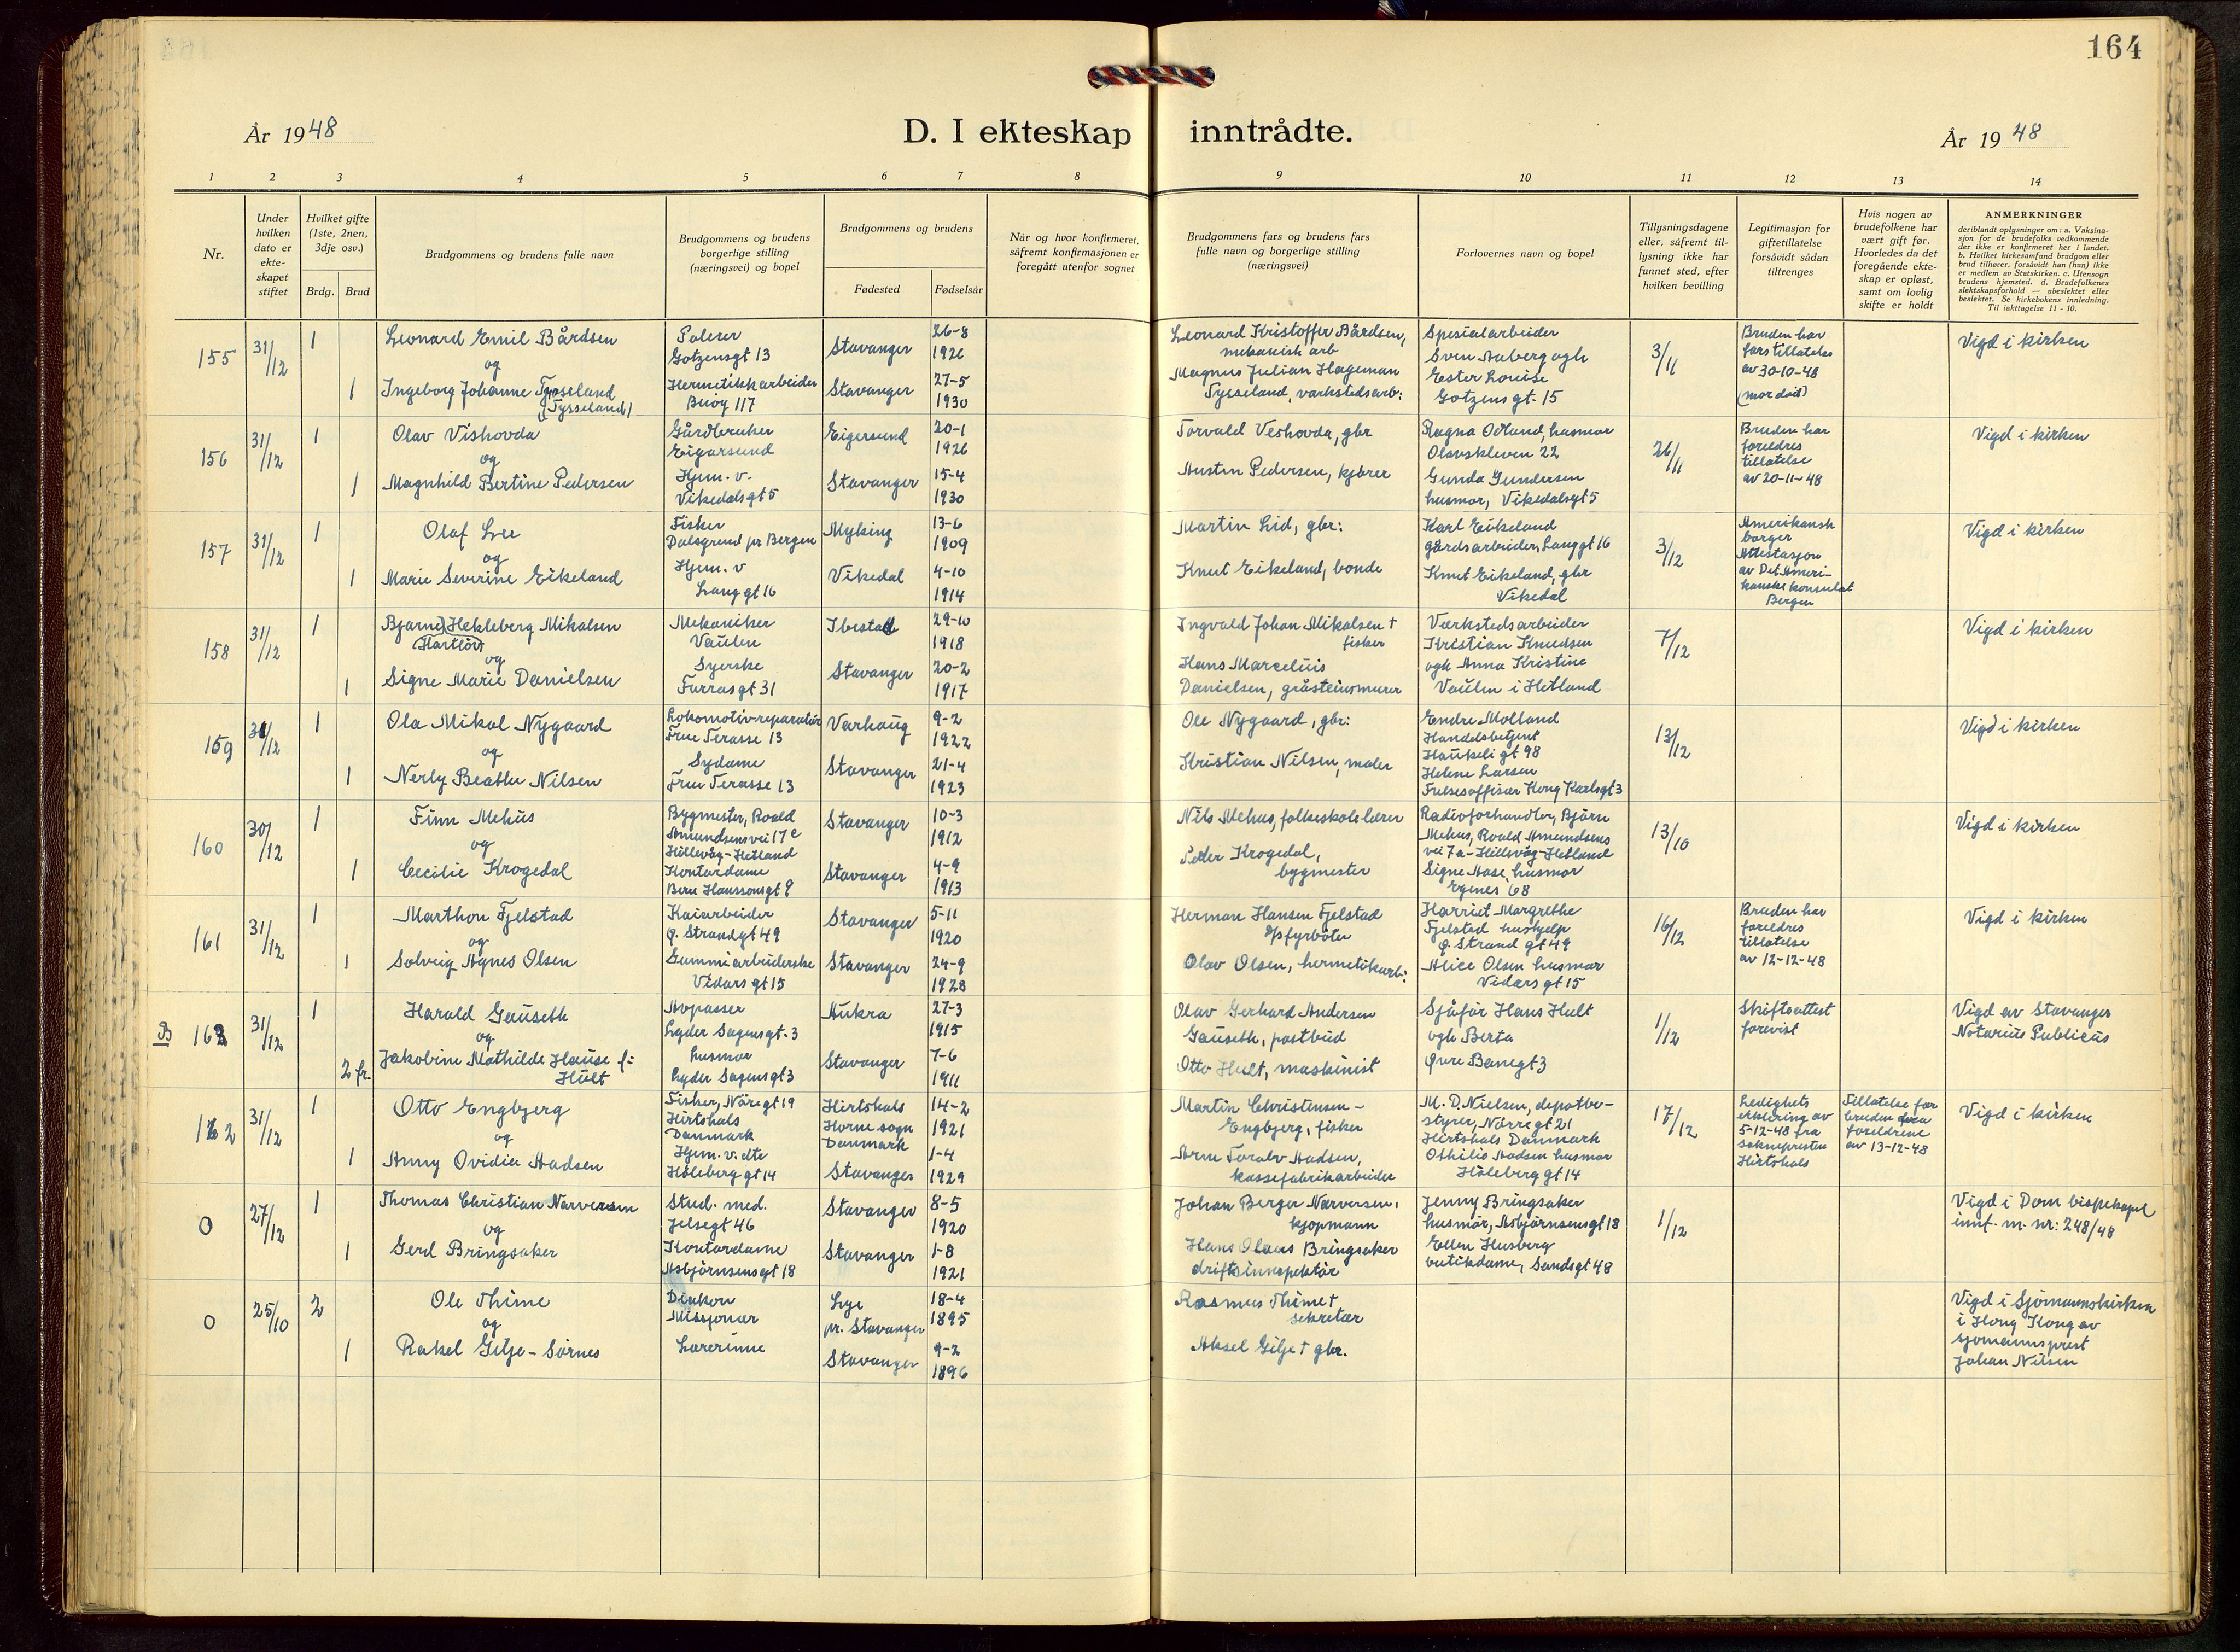 164
År 1948
D. I ekteskap inntrådte.
År 1948
1 2 3 4 5 6 7 8 9 10 11 12 13 14
Nr.
Under hvilken dato er ekte-skapet stiftet
Hvilket gifte (1ste, 2nen, 3dje osv.)
Brdg. Brud
Brudgommens og brudens fulle navn
Brudgommens og brudens borgerlige stilling (næringsvei) og bopel
Brudgommens og brudens
Fødested Fødselsår
Når og hvor konfirmeret, såfremt konfirmasjonen er foregått utenfor sognet
Brudgommens fars og brudens fars fulle navn og borgerlige stilling (næringsvei)
Forlovernes navn og bopel
Tillysningsdagene eller, såfremt til-lysning ikke har funnet sted, efter hvilken bevilling
Legitimasjon for giftetillatelse forsåvidt sådan tiltrenges
Hvis nogen av brudefolkene har vært gift før. Hvorledes da det foregående ekte-skap er opløst, samt om lovlig skifte er holdt
ANMERKNINGER
deriblandt oplysninger om: a. Vaksina-
sjon for de brudefolks vedkommende
der ikke er konfirmeret her i landet.
b. Hvilket kirkesamfund brudgom eller
brud tilhører, forsåvidt han (hun) ikke
er medlem av Statskirken. c. Utensogn
brudens hjemsted. d. Brudefolkenes
slektskapsforhold — ubeslektet eller
beslektet. Se kirkebokens innledning.
Til iakttagelse 11 - 10.
155 31/12 1 Leonard Emil Bårdsen
og
1 Ingeborg Johanne Tysseland
(Tysseland)
Polerer
Gotzensgt 13
Hermetikkarbeider
Buøy 117
Stavanger 26-8 1926
Stavanger 27-5 1930
Leonard Kristoffer Bårdsen,
mekanisk arb
Magnus Julian Hageman
Tysseland, verkstedsarb:
Spesialarbeider
Sven Aaberg ogh
Ester Louise
Gotzens gt. 15
3/11
Bruden har
fars tillatelse
av 30-10-48
(mor død)
Vigd i kirken
156 31/12 1 Olav Vishovda
og
1 Magnhild Bertine Pedersen
Gårdbruker
Eigersund
Hjem. v.
Vikedalsgt 5
Eigersund 20-1 1926
Stavanger 15-4 1930
Torvald Veshovda, gbr
Austin Pedersen, kjører
Ragna Odland, husmor
Olavskleven 22
Gunda Gundersen
husmor, Vikedalsgt 5
26/11
Bruden har
foreldres
tillatelse
av 20-11-48
Vigd i kirken
157 31/12 1 Olaf Lee
og
1 Marie Severine Eikeland
Fisker
Dalsgrend pr Bergen
Hjem. v
Langgt 16
Myking 13-6 1909
Vikedal 4-10 1914
Martin Lid, gbr:
Knut Eikeland, bonde
Karl Eikeland
gårdsarbeider, Langgt 16
Knut Eikeland, gbr
Vikedal
3/12
Amerikansk
borger
Attestasjon
av Det Ameri-
kanske konsulat
Bergen
Vigd i kirken
158 31/12 1 Bjarne Hekleberg Mikalsen
(Hartlöv)
og
1 Signe Marie Danielsen
Mekaniker
Vaulen
Syerske
Furrasgt 31
Ibestad 29-10 1918
Stavanger 20-2 1917
Ingvald Johan Mikalsen †
fisker
Hans Marcelius
Danielsen, gråsteinsmurer
Verkstedsarbeider
Kristian Knudsen
ogh Anna Kristine
Vaulen i Hetland
7/12
Vigd i kirken
159 31/12 1 Ola Mikal Nygaard
og
1 Nerly Beathe Nilsen
Lokomotivreparatør
Frue Terasse 13
Sydame
Frue Terasse 13
Varhaug 9-2 1922
Stavanger 21-4 1923
Ole Nygaard, gbr:
Kristian Nilsen, maler
Endre Molland
Handelsbetjent
Haukeligt 98
Helene Larsen
Frelsesoffiser Kong Karlsgt 3
13/12
Vigd i kirken
160 30/12 1 Finn Mehus
og
1 Cecilie Krogedal
Bygmester, Roald
Amundsens vei 17c
Hillevåg-Hetland
Kontordame
Bern Hanssonsgt 9
Stavanger 10-3 1912
Stavanger 4-9 1913
Nils Mehus, folkeskolelærer
Peder Krogedal,
bygmester
Radioforhandler, Bjørn
Mehus, Roald Amundsens
vei 7a-Hillevåg-Hetland
Signe Aase, husmor
Egenes 68
13/10
Vigd i kirken
161 31/12 1 Marthon Fjelstad
og
1 Solveig Agnes Olsen
Kaiarbeider
Ø. Strandgt 49
Gummiarbeiderske
Vidars gt 15
Stavanger 5-11 1920
Stavanger 24-9 1928
Herman Hansen Fjelstad
fyrbøter
Olav Olsen, hermetikarb:
Harriet Margrethe
Fjelstad hushjelp
Ø. Strand gt 49
Alice Olsen husmor
Vidars gt 15
16/12
Bruden har
foreldres
tillatelse
av 12-12-48
Vigd i kirken
B 163 31/12 1 Harald Gauseth
og
2 fr. Jakobine Mathilde Hause f:
Hult
Avpasser
Lyder Sagensgt. 3
husmor
Lyder Sagensgt 3
Aukra 27-3 1915
Stavanger 7-6 1911
Olav Gerhard Andersen
Gauseth, postbud
Otto Hult, maskinist
Sjåfør Hans Hult
ogh Berta
Øvre Banegt 3
1/12
Skifteattest
forevist
Vigd av Stavanger
Notarius Publicus
162 31/12 1 Otto Engbjerg
og
1 Anny Ovidie Aadsen
Fisker, Nöregt 19
Hirtshals
Danmark
Hjem. v. dte
Höleberggt 14
Hirtshals
Horne sogn
Danmark 14-2 1921
Stavanger 1-4 1929
Martin Christensen-
Engbjerg, fisker
Arne Toralv Aadsen,
kassefabrikarbeider
M. D. Nielsen, depotbe-
styrer, Nörregt 21
Hirtshals Danmark
Othilie Aadsen husmor
Höleberg gt 14
17/12
Ledighets
erklæring av
5-12-48 fra
sokneprest
Hirtshals
Tillatelse for
bruden fra
foreldrene
av 13-12-48
Vigd i kirken
0 27/12 1 Thomas Christian Narvesen
og
1 Gerd Bringsaker
Stud. med.
Jelsegt 46
Kontordame
Asbjørnsensgt 18
Stavanger 8-5 1920
Stavanger 1-8 1921
Johan Berger Narversen,
kjøpmann
Hans Olaus Bringsaker
driftsinnspektør
Jenny Bringsaker
husmor, Asbjørnsensgt 18
Ellen Husberg
butikdame, Sandsgt 48
1/12
Vigd i Dom bispekapel
innf. m. nr: 248/48
0 25/10 2 Ole Thime
og
1 Rakel Gilje-Sørnes
Diakon
Missjonær
Lærerinne
Lye
pr. Stavanger 18-4 1895
Stavanger 9-2 1896
Rasmus Thime †
sekretær
Aksel Gilje † gbr.
Vigd i Sjømannskirken
i Hong Kong av
sjømannsprest
Johan Nilsen